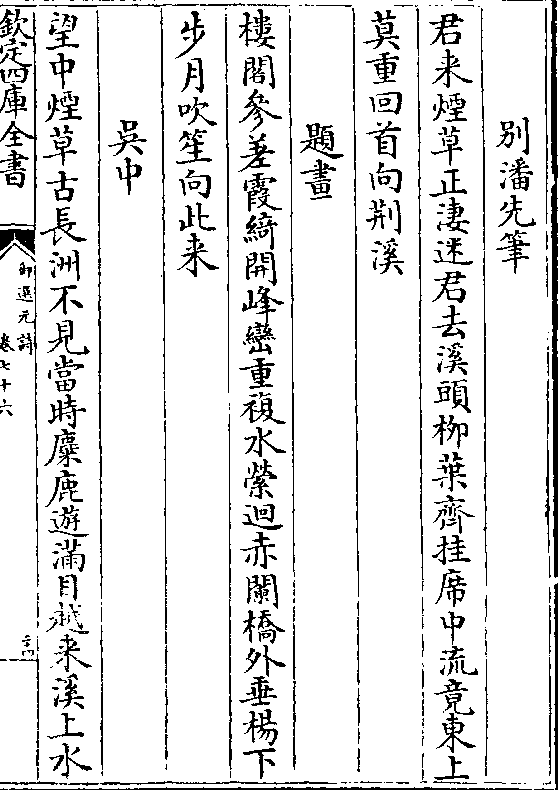 別潘先筆
君来煙草正淒迷君去溪頭栁葉齊挂席中流竟東上
莫重回首向荆溪
題畫
樓閣參差霞綺開峰巒重複水縈迴赤闌橋外垂楊下
步月吹笙向此来
吳中
望中煙草古長洲不見當時麋鹿遊滿目越来溪上水
欽定四庫全書
御選元詩
卷七十六